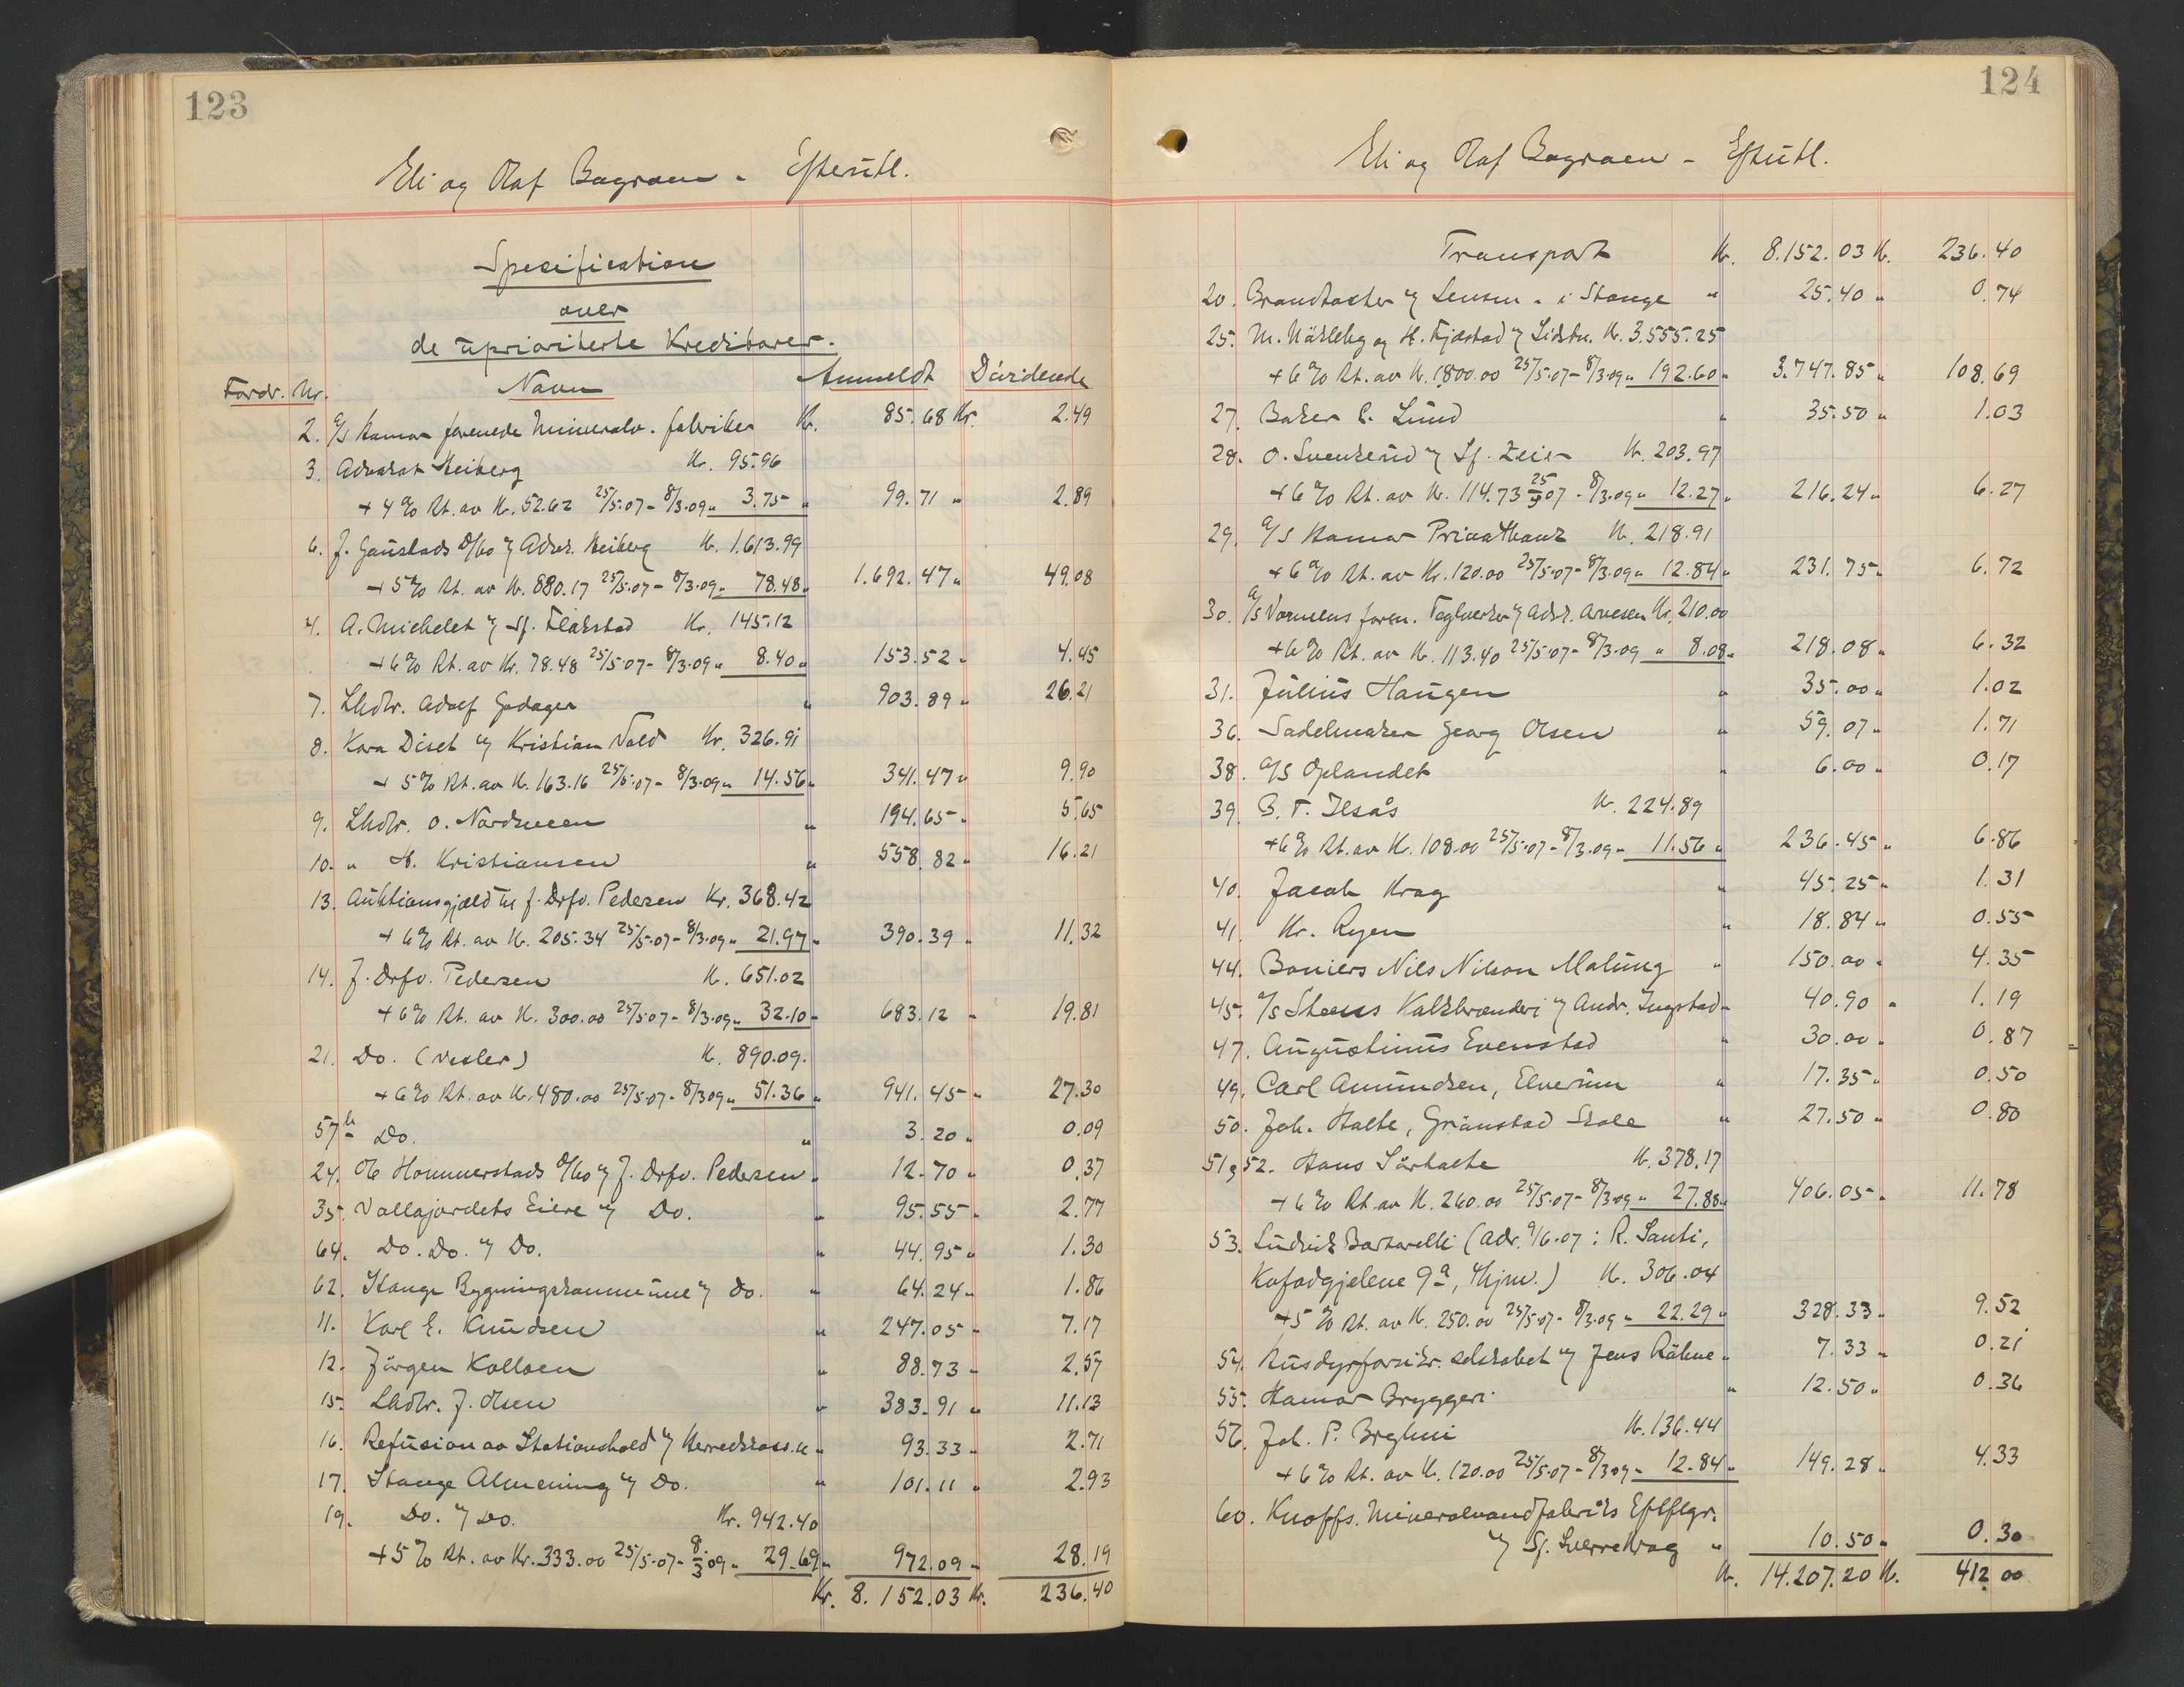 123
Eli og Olaf Bagroen - Efterutl.
Specification
over
de uprioriterte Kreditorer.
Fordr. Nr. Navn Anmeldt Dividende
2. A/S Hamar forenede Mineralv. fabriker Kr. 85.68 Kr. 2.49
3. Advokat Heiberg Kr. 95.96
+ 4 % Rt. av Kr. 52.62 25/5.07 - 8/3.09 " 3.75 " 99.71 " 2.89
6. J. Gaustads D/bo v/ Adv. Heiberg Kr. 1.613.99
+ 5 % Rt. av Kr. 880.17 25/5.07 - 8/3.09 " 78.48 " 1.692.47 " 49.08
4. A. Michelet v/ Sf. Flakstad Kr. 145.12
+ 6 % Rt. av Kr. 78.48 25/5.07 - 8/3.09 " 8.40 " 153.52 " 4.45
7. Lhdlr. Adolf Godager " 903.89 " 26.21
8. Kara Diset v/ Kristian Vold Kr. 326.91
+ 5 % Rt. av Kr. 163.16 25/5.07 - 8/3.09 " 14.56 " 341.47 " 9.90
9. Lhdlr. O. Nordmoen " 194.65 " 5.65
10. " H. Kristiansen " 558.82 " 16.21
13. Auktionsgjæld til f. Drfv. Pedersen Kr. 368.42
+ 6 % Rt. av Kr. 205.34 25/5.07 - 8/3.09 " 21.97 " 390.39 " 11.32
14. f. Drfv. Pedersen Kr. 651.02
+ 6 % Rt. av Kr. 300.00 25/5.07 - 8/3.09 " 32.10 " 683.12 " 19.81
21. Do. (Vexler) Kr. 890.09.
+ 6 % Rt. av Kr. 480.00 25/5.07 - 8/3 09 " 51.36 " 941.45 " 27.30
57 b Do. " 3.20 " 0.09
24. Ole Hommerstads D/bo v/ f. Drfv. Pedersen " 12.70 " 0.37
35. Vallajordets Eiere v/ Do. " 95.55 " 2.77
64. Do. Do. v/ Do. " 44.95 " 1.30
62. Stange Bygningskommune v/ Do. " 64.24 " 1.86
11. Karl E. Knudsen " 247.05 " 7.17
12. Jörgen Kolloen " 88.73 " 2.57
15. Lhdlr. J. Olsen " 383.91 " 11.13
16. Refusion av Stationshold v/ Herredskass. " 93.33 " 2.71
17. Stange Almening v/ Do. " 101.11 " 2.93
19. Do. v/ Do. Kr. 942.40
+ 5 % Rt. av Kr. 333.00 25/5.07 - 8/3 09 " 29.69 " 972.09 " 28.19
Kr. 8.152.03 Kr. 236.40
124
Eli og Olaf Bagroen - Eftutl.
Transport Kr. 8.152.03 Kr. 236.40
20. Brandkasten v/ Lensm. i Stange " 25.40 " 0.74
25. M. Nökleby og H. Fjæstad v/ Lidstu. Kr. 3.555.25
+ 6 % Rt. av Kr. 1800.00 25/5.07 - 8/3.09 " 192.60 " 3.747.85 " 108.69
27. Baker C. Lund " 35.50 " 1.03
28. O. Svenkerud v/ Sf. Zeier Kr. 203.97
+ 6 % Rt. av Kr. 114.73 25/5 07 - 8/3.09 " 12.27 " 216.24 " 6.27
29. A/S Hamar Privatbank Kr. 218.91
+ 6 % Rt. av Kr. 120.00 25/5.07 - 8/3.09 " 12.84 " 231.75 " 6.72
30. A/S Vormens foren. Teglverker v/ Adv. Arnesen Kr. 210.00
+ 6 % Rt. av Kr. 113.40 25/5.07 - 8/3.09 " 8.08 " 218.08 " 6.32
31. Julius Haugen " 35.00 " 1.02
36. Sadelmaker Georg Olsen " 59.07 " 1.71
38. A/S Oplandet " 6.00 " 0.17
39. B. T. Ilsås Kr. 224.89
+ 6 % Rt. av Kr. 108.00 25/5.07 - 8/3.09 " 11.56 " 236.45 " 6.86
40. Jacob Krag " 45.25 " 1.31
41. Kr. Ryen " 18.84 " 0.55
44. Boniers Nils Nilson Malung " 150.00 " 4.35
45. A/S Steens Kalkbrænderi v/ Andr. Ingstad " 40.90 " 1.19
47. Augustinus Evenstad " 30.00 " 0.87
49. Carl Amundsen, Elverum " 17.35 " 0.50
50. Joh. Halte, Grönstad Skole " 27.50 " 0.80
51 & 52. Hans Sörhalte Kr. 378.17
+ 6 % Rt. av Kr. 260.00 25/5.07 - 8/3.09 " 27.88 " 406.05 " 11.78
53. Ludvik Bartarelli (adr. 9/6.07: R. Santi,
Kofodgjelene 9a, Khjem.) Kr. 306.04
+ 5 % Rt. av Kr. 250.00 25/5.07 - 8/3.09 " 22.29 " 328.33 " 9.52
54. Husdyrforsikr. selskabet v/ Jens Röhne " 7.33 " 0.21
55. Hamar Bryggeri " 12.50 " 0.36
56. Joh. P. Bryhni Kr. 136.44
+ 6 % Rt. av Kr. 120.00 25/5.07 - 8/3 09 " 12.84 " 149.28 " 4.33
60. Knoffs. Mineralvandfabriks Eftflgr.
v/ Sf. Sverre Krag " 10.50 " 0.30
Kr. 14.207.20 Kr. 412.00